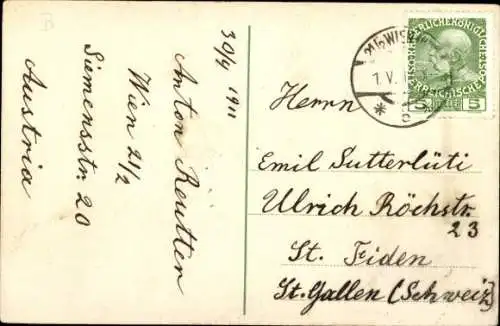 30/4 1911
Anton Reutter
Wien 21/2
Siemensstr. 20
Austria
WIEN
1. V. 1
KAISERLICHE KÖNIGLICHE
ÖSTERREICHISCHE POST
5 HELLER 5
Herrn
Emil Sutterlüti
Ulrich Röchstr.
23
St. Fiden
St. Gallen (Schweiz)